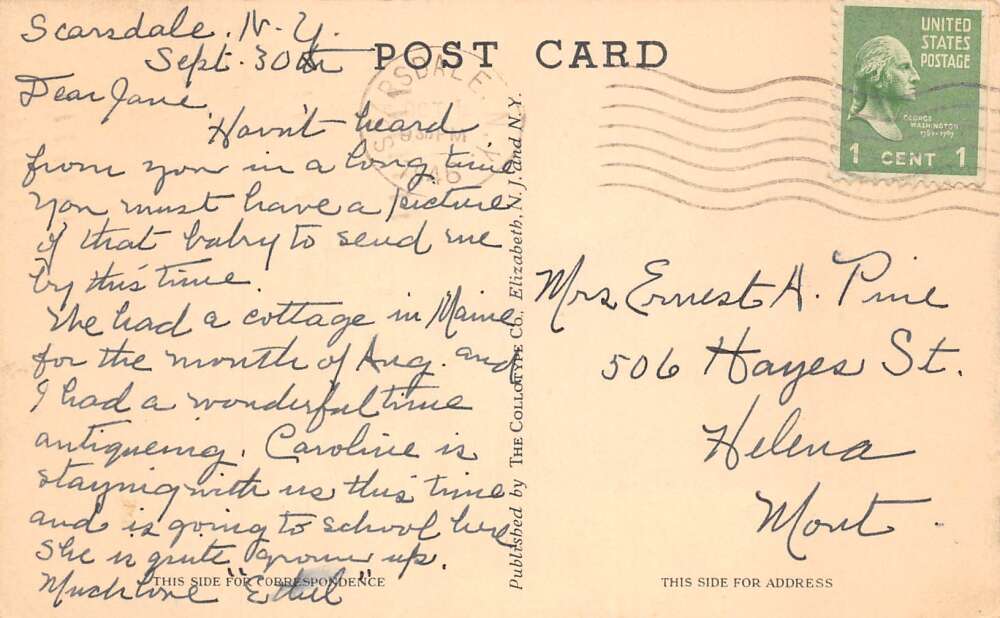 Scarsdale, N.Y.
Sept. 30th
POST CARD
Dear Jane
Hav'nt heard
from you in a long time
You must have a picture
of that baby to send me
by this time.
We had a cottage in Maine
for the month of Aug. and
I had a wonderful time
antiqueing. Caroline is
staying with us this time
and is going to school here
She is quite grown up.
Much love "Ethel"
THIS SIDE FOR CORRESPONDENCE
Published by THE COLLOTYPE CO., Elizabeth, N. J. and N.Y.
SCARSDALE N.Y.
930 PM
1946
UNITED
STATES
POSTAGE
GEORGE
WASHINGTON
1789-1797
1 CENT 1
Mrs. Ernest A. Pine
506 Hayes St.
Helena
Mont.
THIS SIDE FOR ADDRESS